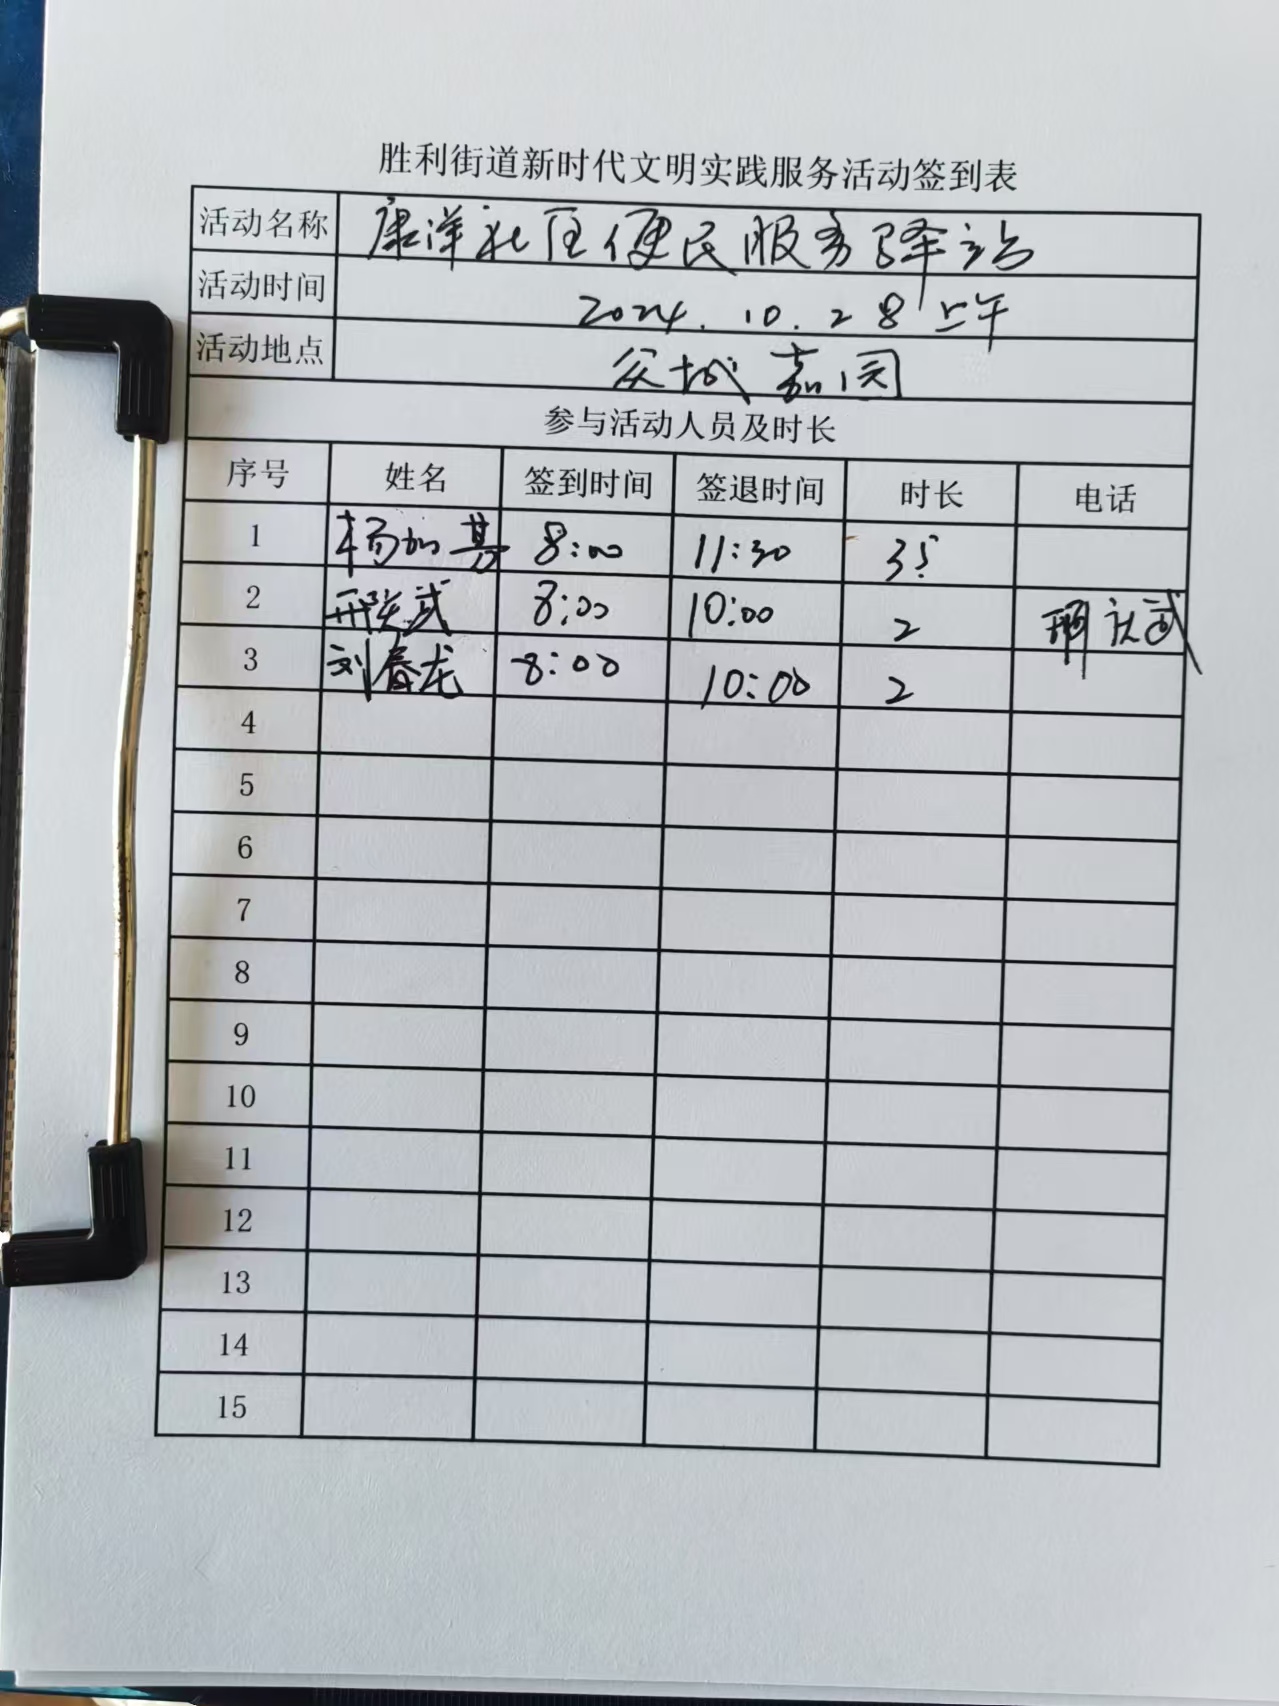 胜利街道新时代文明实践服务活动签到表
活动名称 康洋社区便民服务驿站
活动时间 2024.10.28上午
活动地点 众城嘉园
参与活动人员及时长
序号 姓名 签到时间 签退时间 时长 电话
1 杨加 8:00 11:30 3.5
2 武 8:00 10:00 2
3 刘春龙 8:00 10:00 2
4
5
6
7
8
9
10
11
12
13
14
15